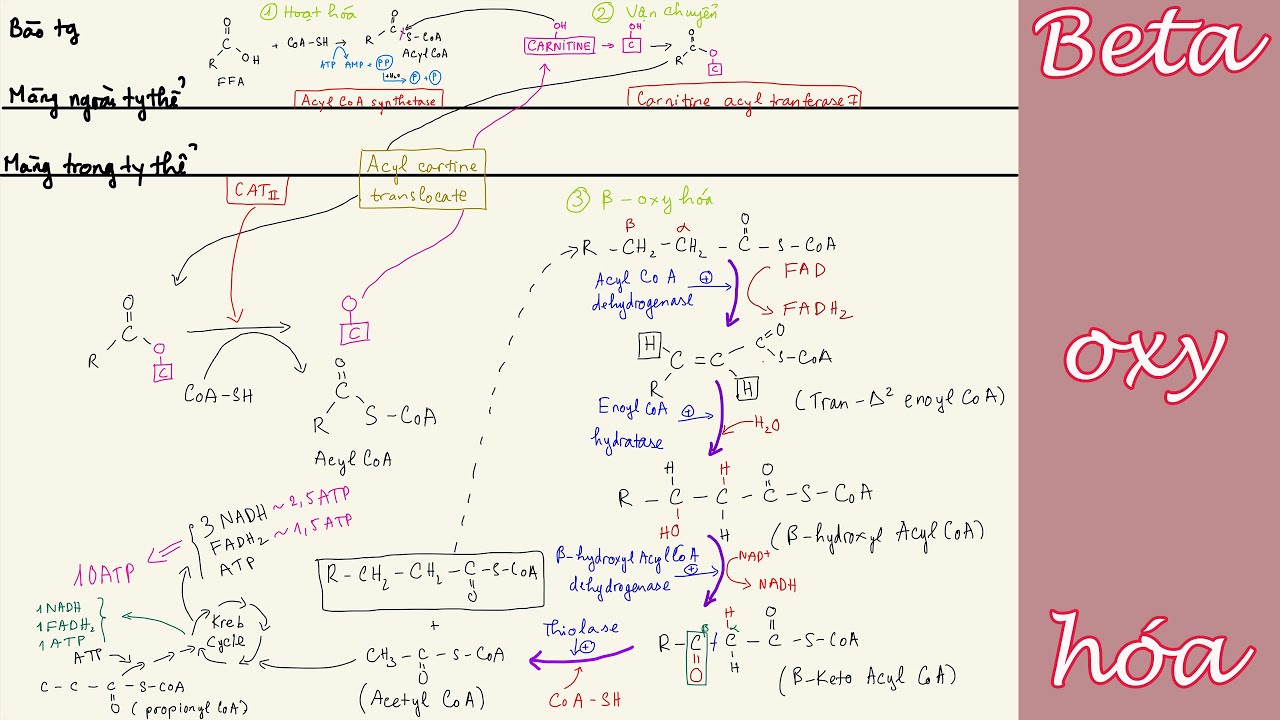 Bào tg
① Hoạt hóa
② Vận chuyển
O
C
R
OH
FFA
+ CoA-SH →
ATP
AMP + PP
+H₂O
P + P
O
C
R
S-CoA
Acyl CoA
OH
CARNITINE
OH
C
O
C
R
O
C
Màng ngoài ty thể
Acyl CoA synthetase
Carnitine acyl tranferase I
Màng trong ty thể
Acyl cartine
translocate
CAT II
③ β-oxy hóa
β α
O
R - CH₂ - CH₂ - C - S - CoA
Acyl CoA
dehydrogenase
+
FAD
FADH₂
O
C
R
O
C
CoA-SH
O
C
O
C
R
S - CoA
Acyl CoA
H
C = C
R
H
C
O
S-CoA
(Tran-Δ² enoyl CoA)
Enoyl CoA
hydratase
+
H₂O
H H O
R - C - C - C - S - CoA
HO H
(β-hydroxyl Acyl CoA)
β-hydroxyl Acyl CoA
dehydrogenase
+
NAD+
NADH
3 NADH ~ 2,5 ATP
FADH₂ ~ 1,5 ATP
ATP
10 ATP
R - CH₂ - CH₂ - C - S - CoA
O
+
1 NADH
1 FADH₂
1 ATP
Kreb
Cycle
ATP
Thiolase
+
CoA-SH
H
β α O
R - C - C - C - S - CoA
O H
(β-Keto Acyl CoA)
CH₃ - C - S - CoA
O
(Acetyl CoA)
C - C - C - S-CoA
O
(propionyl CoA)
Beta
oxy
hóa